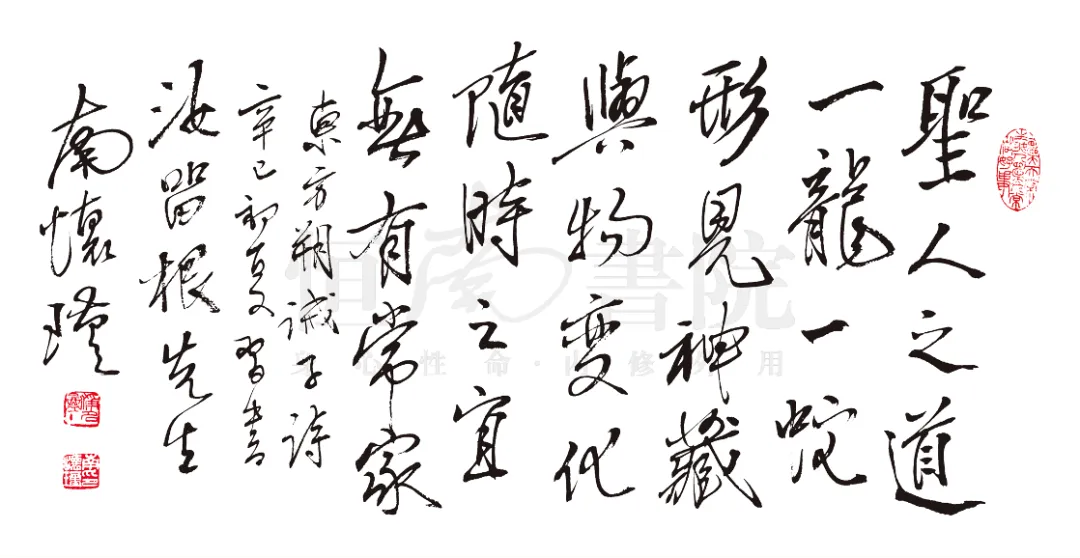 聖人之道
一龍一蛇
形見神藏
與物變化
隨時之宜
無有常家
東方朔誡子詩
辛巳初夏習書
汝留根先生
南懷瑾
恒南書院
身心性命·内修外用